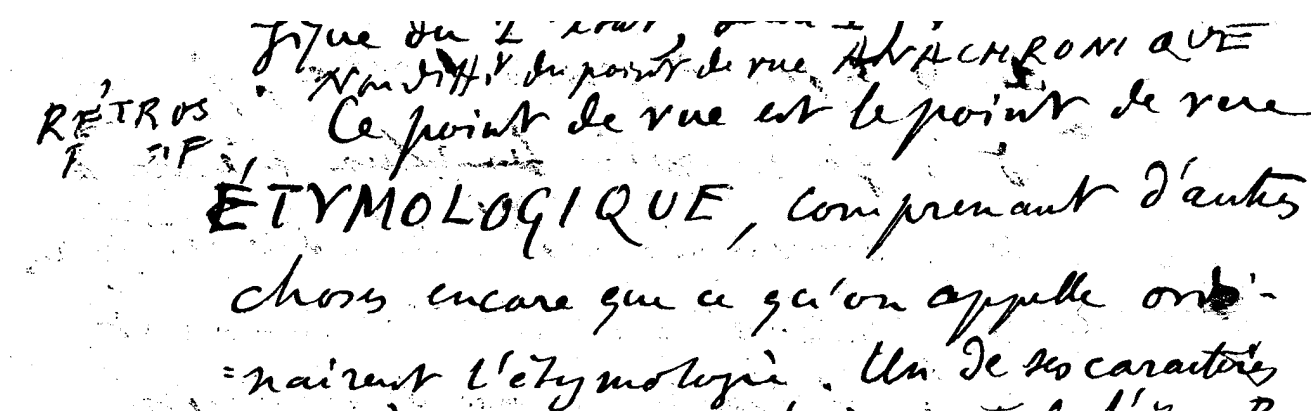 du 2
du point de vue ANACHRONIQUE
RÉTROS
Ce point de vue est le point de vue
ÉTYMOLOGIQUE, comprenant d'autres
choses encore que ce qu'on appelle ordi-
=nairent l'étymologie. Un de ses caractères